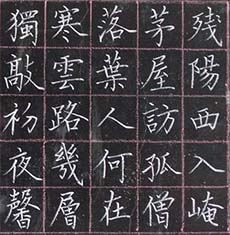 残陽西入崦
茅屋訪孤僧
落葉人何在
寒雲路幾層
獨敲初夜馨